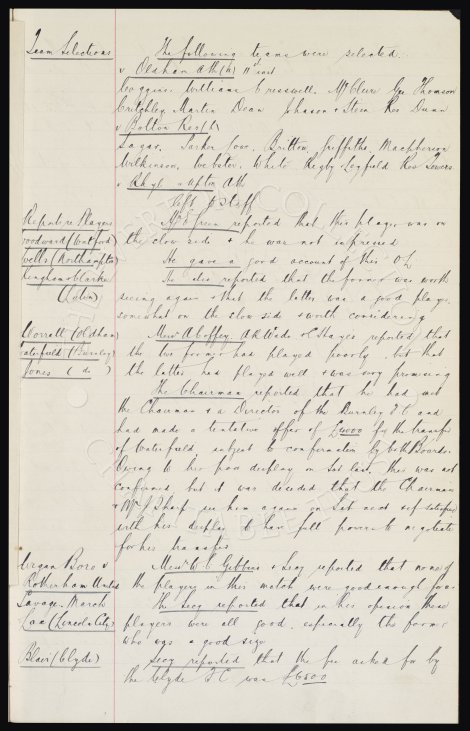 Team Selections
The following teams were selected.
v Oldham Ath (h) 1st inst
Coggins. Williams Cresswell. McClure Gee Thomson
Critchley Martin Dean Johnson & Stein Res Dunn
v Bolton Res (h)
Sagar. Parker Lowe. Britton, Griffiths. Macpherson
Wilkinson, Webster, White Rigby Leyfield Res Lewers
v Rhyl & Upton Ath
Left to Staff
Report re Players
Mr E Green reported that this player was on
Woodward (Watford)
the slow side & he was not impressed
Wells (Northampton)
He gave a good account of this O.L.
Bingham & Clarke
He also reported that the former was worth
(Luton)
seeing again & that the latter was a good player
somewhat on the slow side & worth considering
Worrall (Oldham)
Messrs A Coffey, A K Wade & C Hayes reported that
Waterfield (Burnley)
the two former had played poorly but that
Jones ( do )
the latter had played well & was very promising
The Chairman reported that he had met
the Chairman & a Director of the Burnley F C and
had made a tentative offer of £4000 for the transfer
of Waterfield, subject to confirmation by both Boards.
Owing to his poor display on Sat last, this was not
confirmed but it was decided that the Chairman
& Mr J Sharp see him again on Sat next & if satisfied
with his display to have full power to negotiate
for his transfer
Wigan Boro v
Messrs W C Gibbins & Seag reported that none of
Rotherham United
the players in this match were good enough for us
Savage. March
Mr Seag reported that in his opinion these
Lax (Lincoln City)
players were all good, especially the former
who was a good size
Blair (Clyde)
Seag reported that the fee asked for by
the Clyde F C was £6500